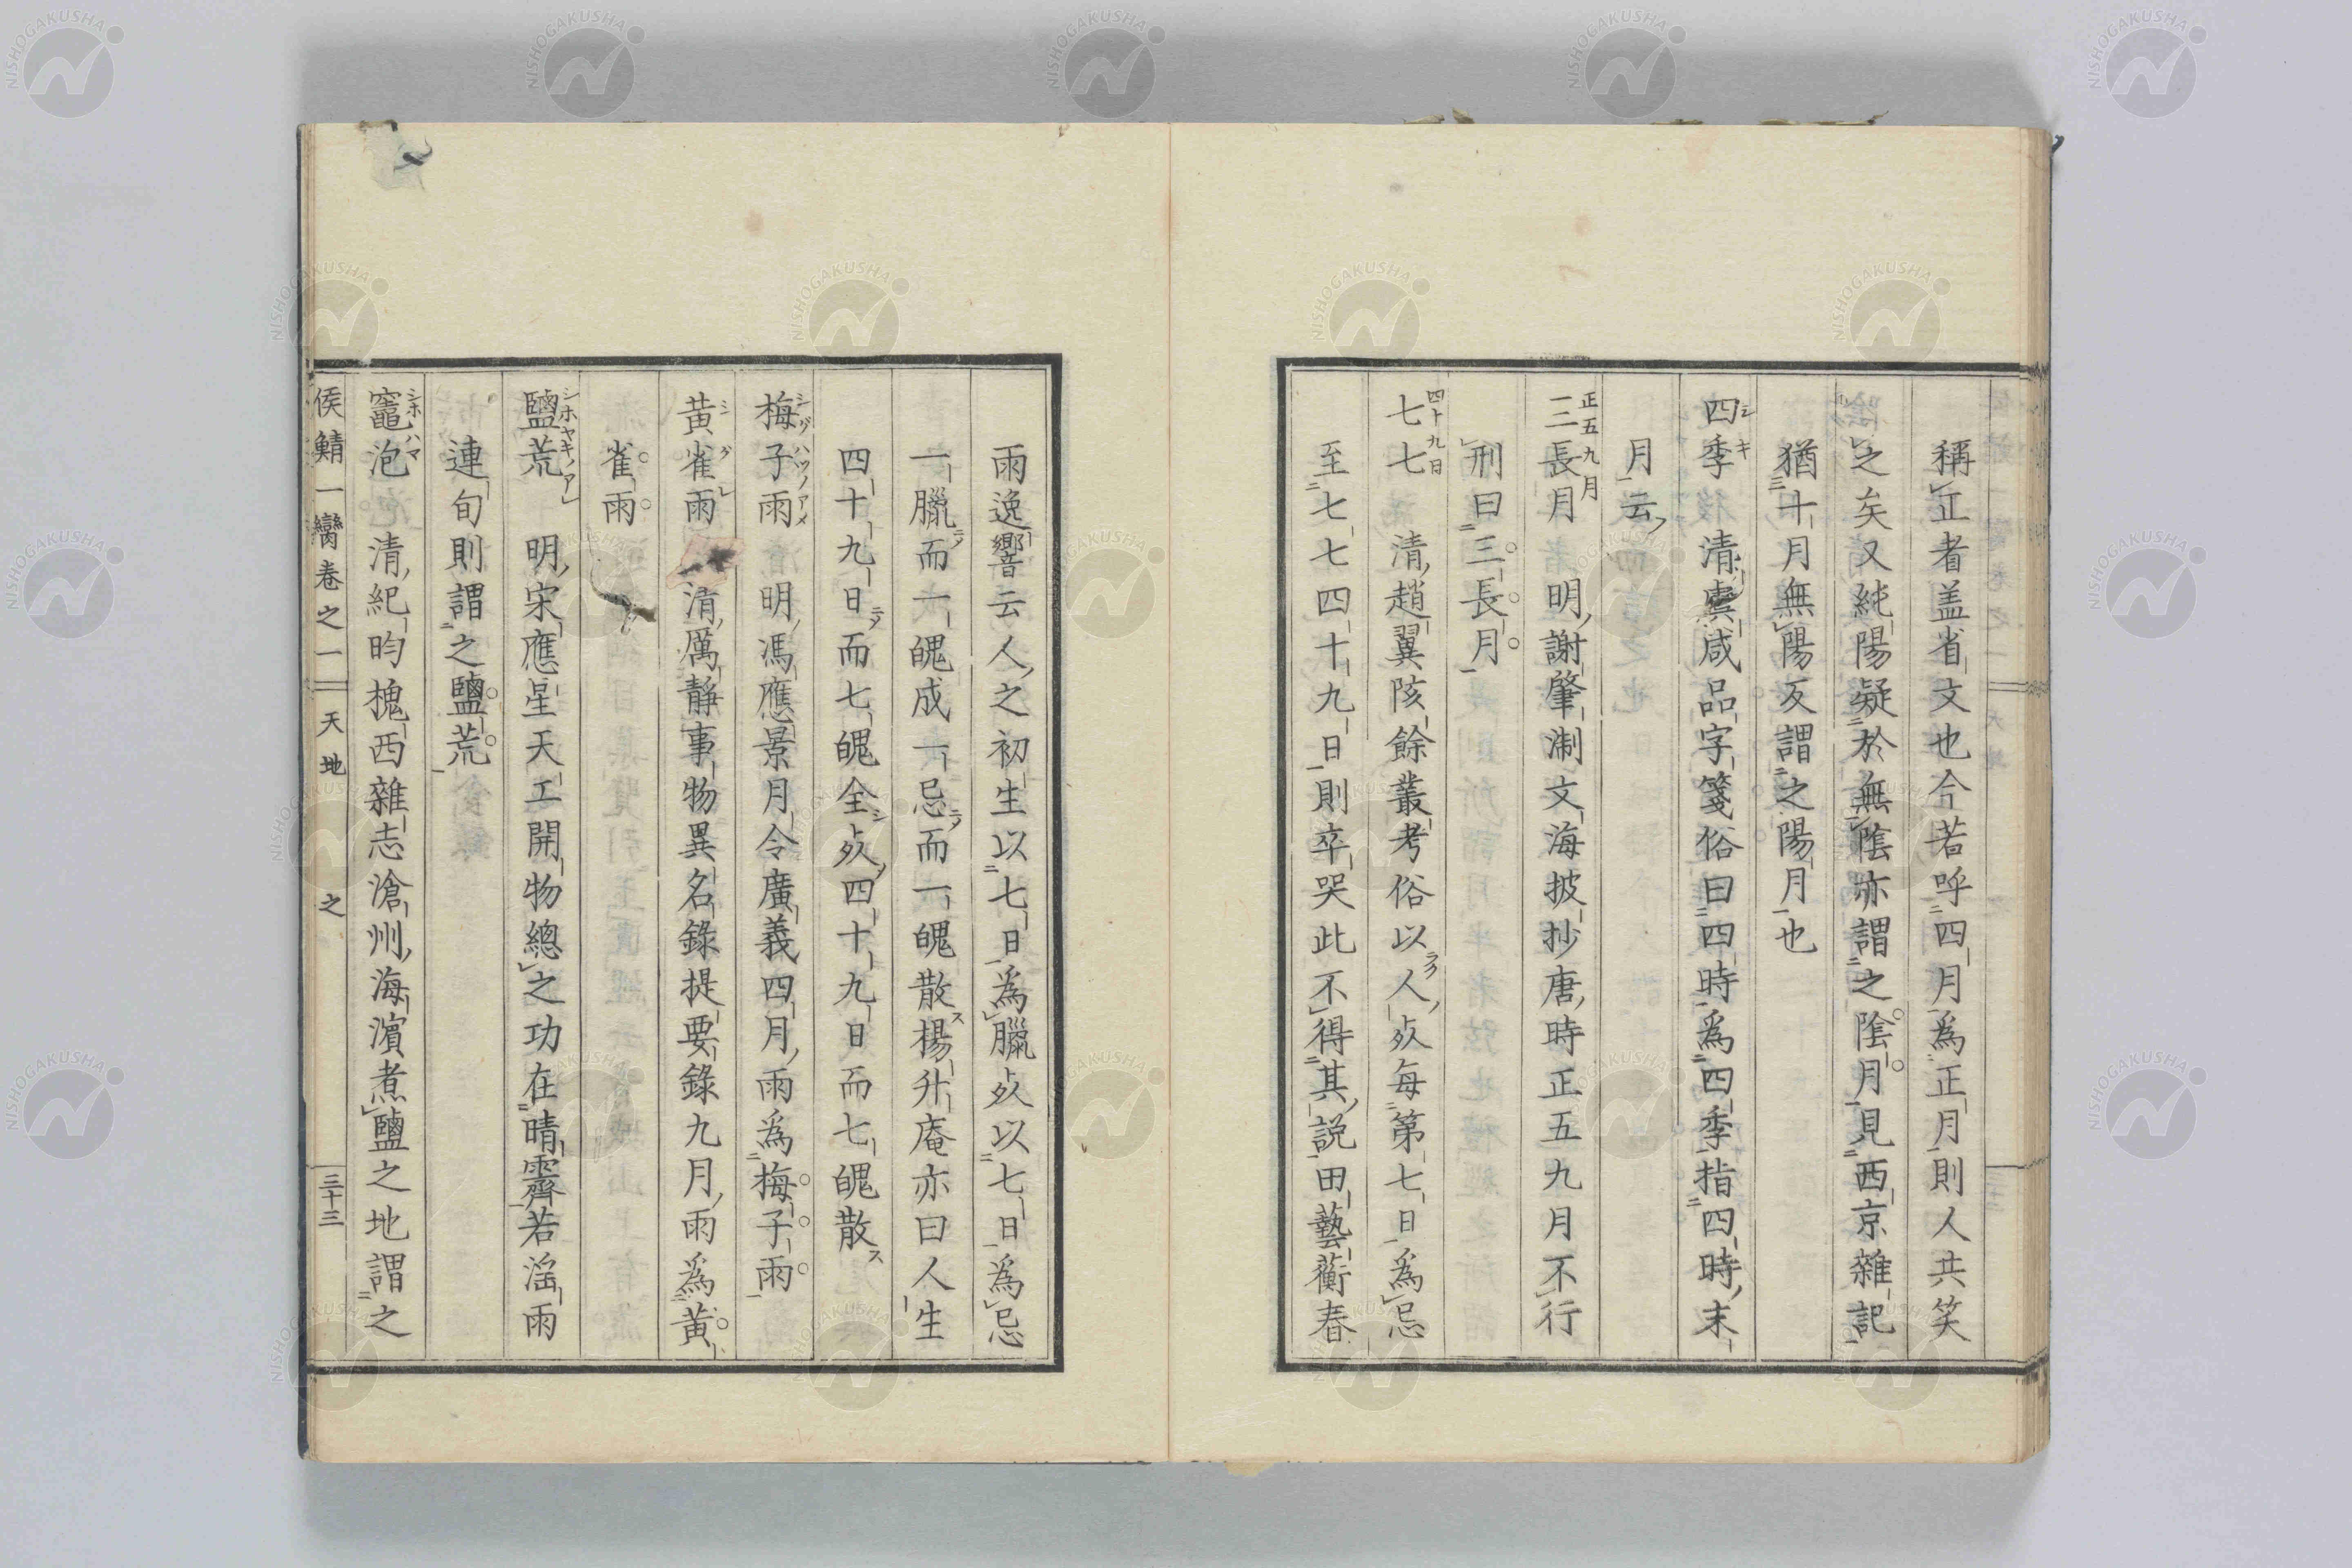 稱正者盖省文也今若呼四月爲正月則人共笑
之矣又純陽疑於無陰亦謂之陰月見西京雜記
猶十月無陽反謂之陽月也
四季 清虞咸品字箋俗曰四時爲四季指四時末
シキ
月云
三長月 明謝肇淛文海披抄唐時正五九月不行
正五九月
刑曰三長月
七七 清趙翼陔餘叢考俗以人歿每第七日爲忌
四十九日
至七七四十九日則卒哭此不得其說田藝蘅春
雨逸響云人之初生以七日爲臘歿以七日爲忌
一臘而一魄成一忌而一魄散楊升庵亦曰人生
四十九日而七魄全歿四十九日而七魄散
梅子雨 明馮應景月令廣義四月雨爲梅子雨
黃雀雨 清厲靜事物異名錄提要錄九月雨爲黃
シグレ
雀雨
鹽荒 明宋應星天工開物總之功在晴霽若滛雨
シホヤキノアレ
連旬則謂之鹽荒
竈泡 清紀昀槐西雜志滄州海濵煮鹽之地謂之
シホハマ
侯鯖一臠卷之一 天地 之 三十三
NISHOGAKUSHA